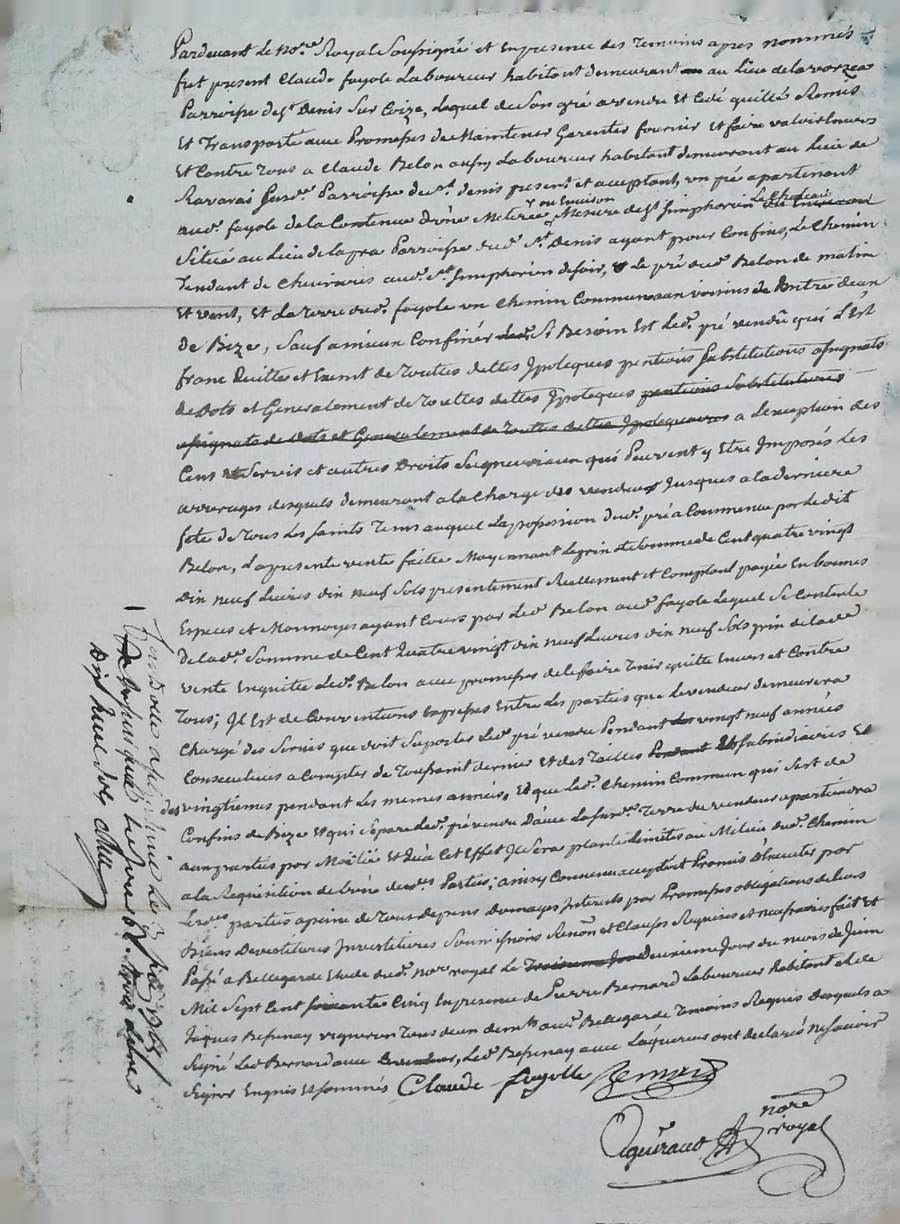 Pardevant le No.re Royal Soussigné et En presence des Temoins apres nommés
fut present Claude fayole Laboureur habitant demeurant au lieu de la
Parroisse de S.t Denis Sur Coize, Lequel de Son gré a vendu Et Cedé quitté Remis
Et Transporté avec Promesses de Maintenir Garentir fournir et faire valoir Envers
Et Contre Tous a Claude Belon aussy Laboureur habitant demeurant au Lieu de
Ravarai Susd. Parroisse de S.t denis present et acceptant, un pré apartenant
aud. fayole de la Contenue d'une Meterée ou Environ Mesure de S.t Simphorien Le Chateau
Situé au Lieu de la Parroisse dud. S.t Denis ayant pour Confins, Le Chemin
Tendant de aud. S.t Simphorien de soir, Le pré dud. Belon de matin
Et vent, Et La Terre dud. fayole un Chemin Commun aux voisins Entre deux
de Bize, Sauf a mieux Confiner Si Besoin Est Led. pré vendu qui L'Est
franc Quitte et Exemt de Toutes dettes Ypoteques pentions Substitutions assignats
de Dots et Generalement de Touttes dettes Ypoteques pentions Substitutions
assignats de Dots et Generalement de Toutes dettes Ypoteques a L'exception des
Cens Servis et autres Droits Seigneuriaux qui Peuvent y Etre Imposés Les
arrerages desquels demeurant a la Charge des vendeur Jusques a la derniere
fete de Tous Les Saints Tems auquel La possession dud. pré a Commencé par Ledit
Belon, La presente vente faitte Moyennant Le prix et Somme de Cent quatre vingt
Dix neuf Livres dix neuf Sols presentement Reellement et Comptant payée En bonnes
Especes et Monnoyes ayant Cours par Led. Belon aud. fayole Lequel Se Contente
De lad. Somme de Cent Quatre vingt dix neuf Livres dix neuf Sols prix de lad.
vente En quitte Led. Belon avec promesse de le faire Tenir quitte Envers et Contre
Tous; Il Est de Conventions Expresses Entre Les parties que Le vendeur demeurera
Chargé des Servis que doit Suporter Led. pré vendu Pendant vingt neuf années
Consecutives a Compter de Toussaint dernier et des Tailles Pendant Subsidiaires Et
des vingtiemes pendant Les memes années, Et que Led. Chemin Commun qui Sert de
Confins de Bize Et qui Separe Led. pré vendu D'avec La Terre du vendeur apartiendra
aux parties par Moitié Et qu'a Cet Effet Il Sera planté Limittes au Milieu dud. Chemin
a la Requisition de L'une des Parties; ainsy Convenu accepté et Promis D'Executer par
Lesd. parties a peine de Tous Depens Domages Interets par Promesses obligations de Leurs
Biens Devestitures Investitures Soumissions Renon et Clauses Requises et necessaires fait Et
Passé a Bellegarde Etude dud. No.re royal Le Troisieme Jour deuxieme Jour du mois de Juin
Mil Sept Cent soixante Cinq En presence de Pierre Bernard Laboureur Habitant et de
Jaques Bessenay vigneron Tous deux dem.ts aud. Bellegarde Temoins Requis Desquels a
Signé Led. Bernard avec Le vendeur, Led. Bessenay avec L'aquereur ont declarés ne Scavoir
Signer Enquis Et Sommés Claude fayolle Bernard
no.re royal